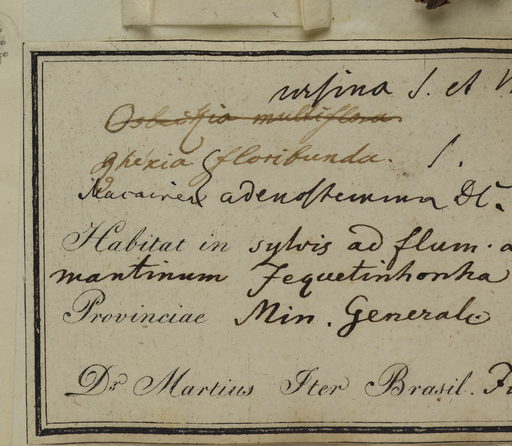 ursina S. et
Osbeckia multiflora
Rhexia floribunda. S.
Macairea adenostemma DC.
Habitat in sylvis ad flum.
mantinum Jequetinhonha
Provinciae Min. Generale
Dr. Martius Iter Brasil.